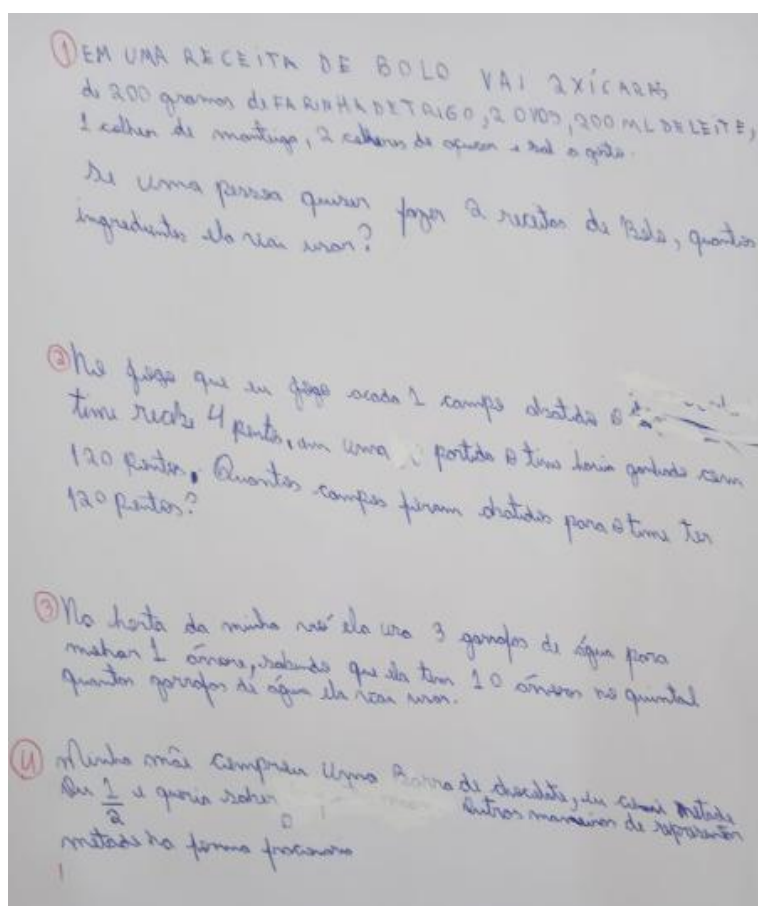 ① EM UMA RECEITA DE BOLO VAI 2 XÍCARAS
de 200 gramas de FARINHA DE TRIGO, 2 OVOS, 200 ML DE LEITE,
1 colher de manteiga, 2 colheres de açucar e sal a gosto.
Se uma pessoa quiser fazer 2 receitas de Bolo, quantos
ingredientes ela vai usar?
② No jogo que eu jogo acada 1 campo abatido o
time recebe 4 Pontos, em uma partida o time havia ganhado com
120 Pontos. Quantos campos foram abatidos para o time ter
120 Pontos?
③ Na horta da minha vó ela usa 3 garrafas de água para
molhar 1 árvore, sabendo que ela tem 10 árvores no quintal
quantas garrafas de água ela vai usar.
④ Minha mãe comprou Uma Barra de chocolate, eu comi metade
Ou 1/2 e queria saber Outras maneiras de representar
metade na forma